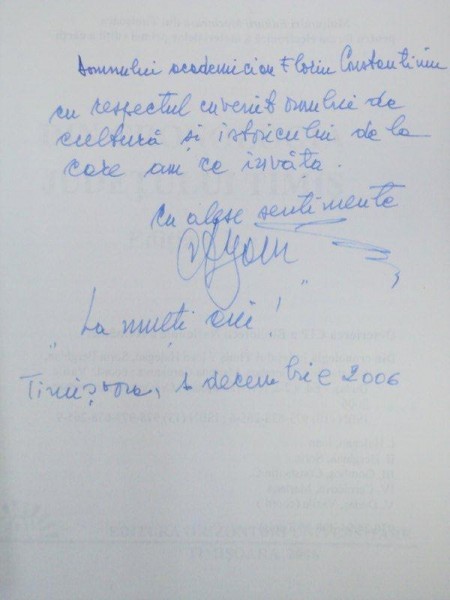 Domnului academician Florin Constantiniu
cu respectul cuvenit omului de
cultură și istoricului de la
care am ce învăța.
Cu alese sentimente
"La mulți ani!"
Timișoara, 1 decembrie 2006